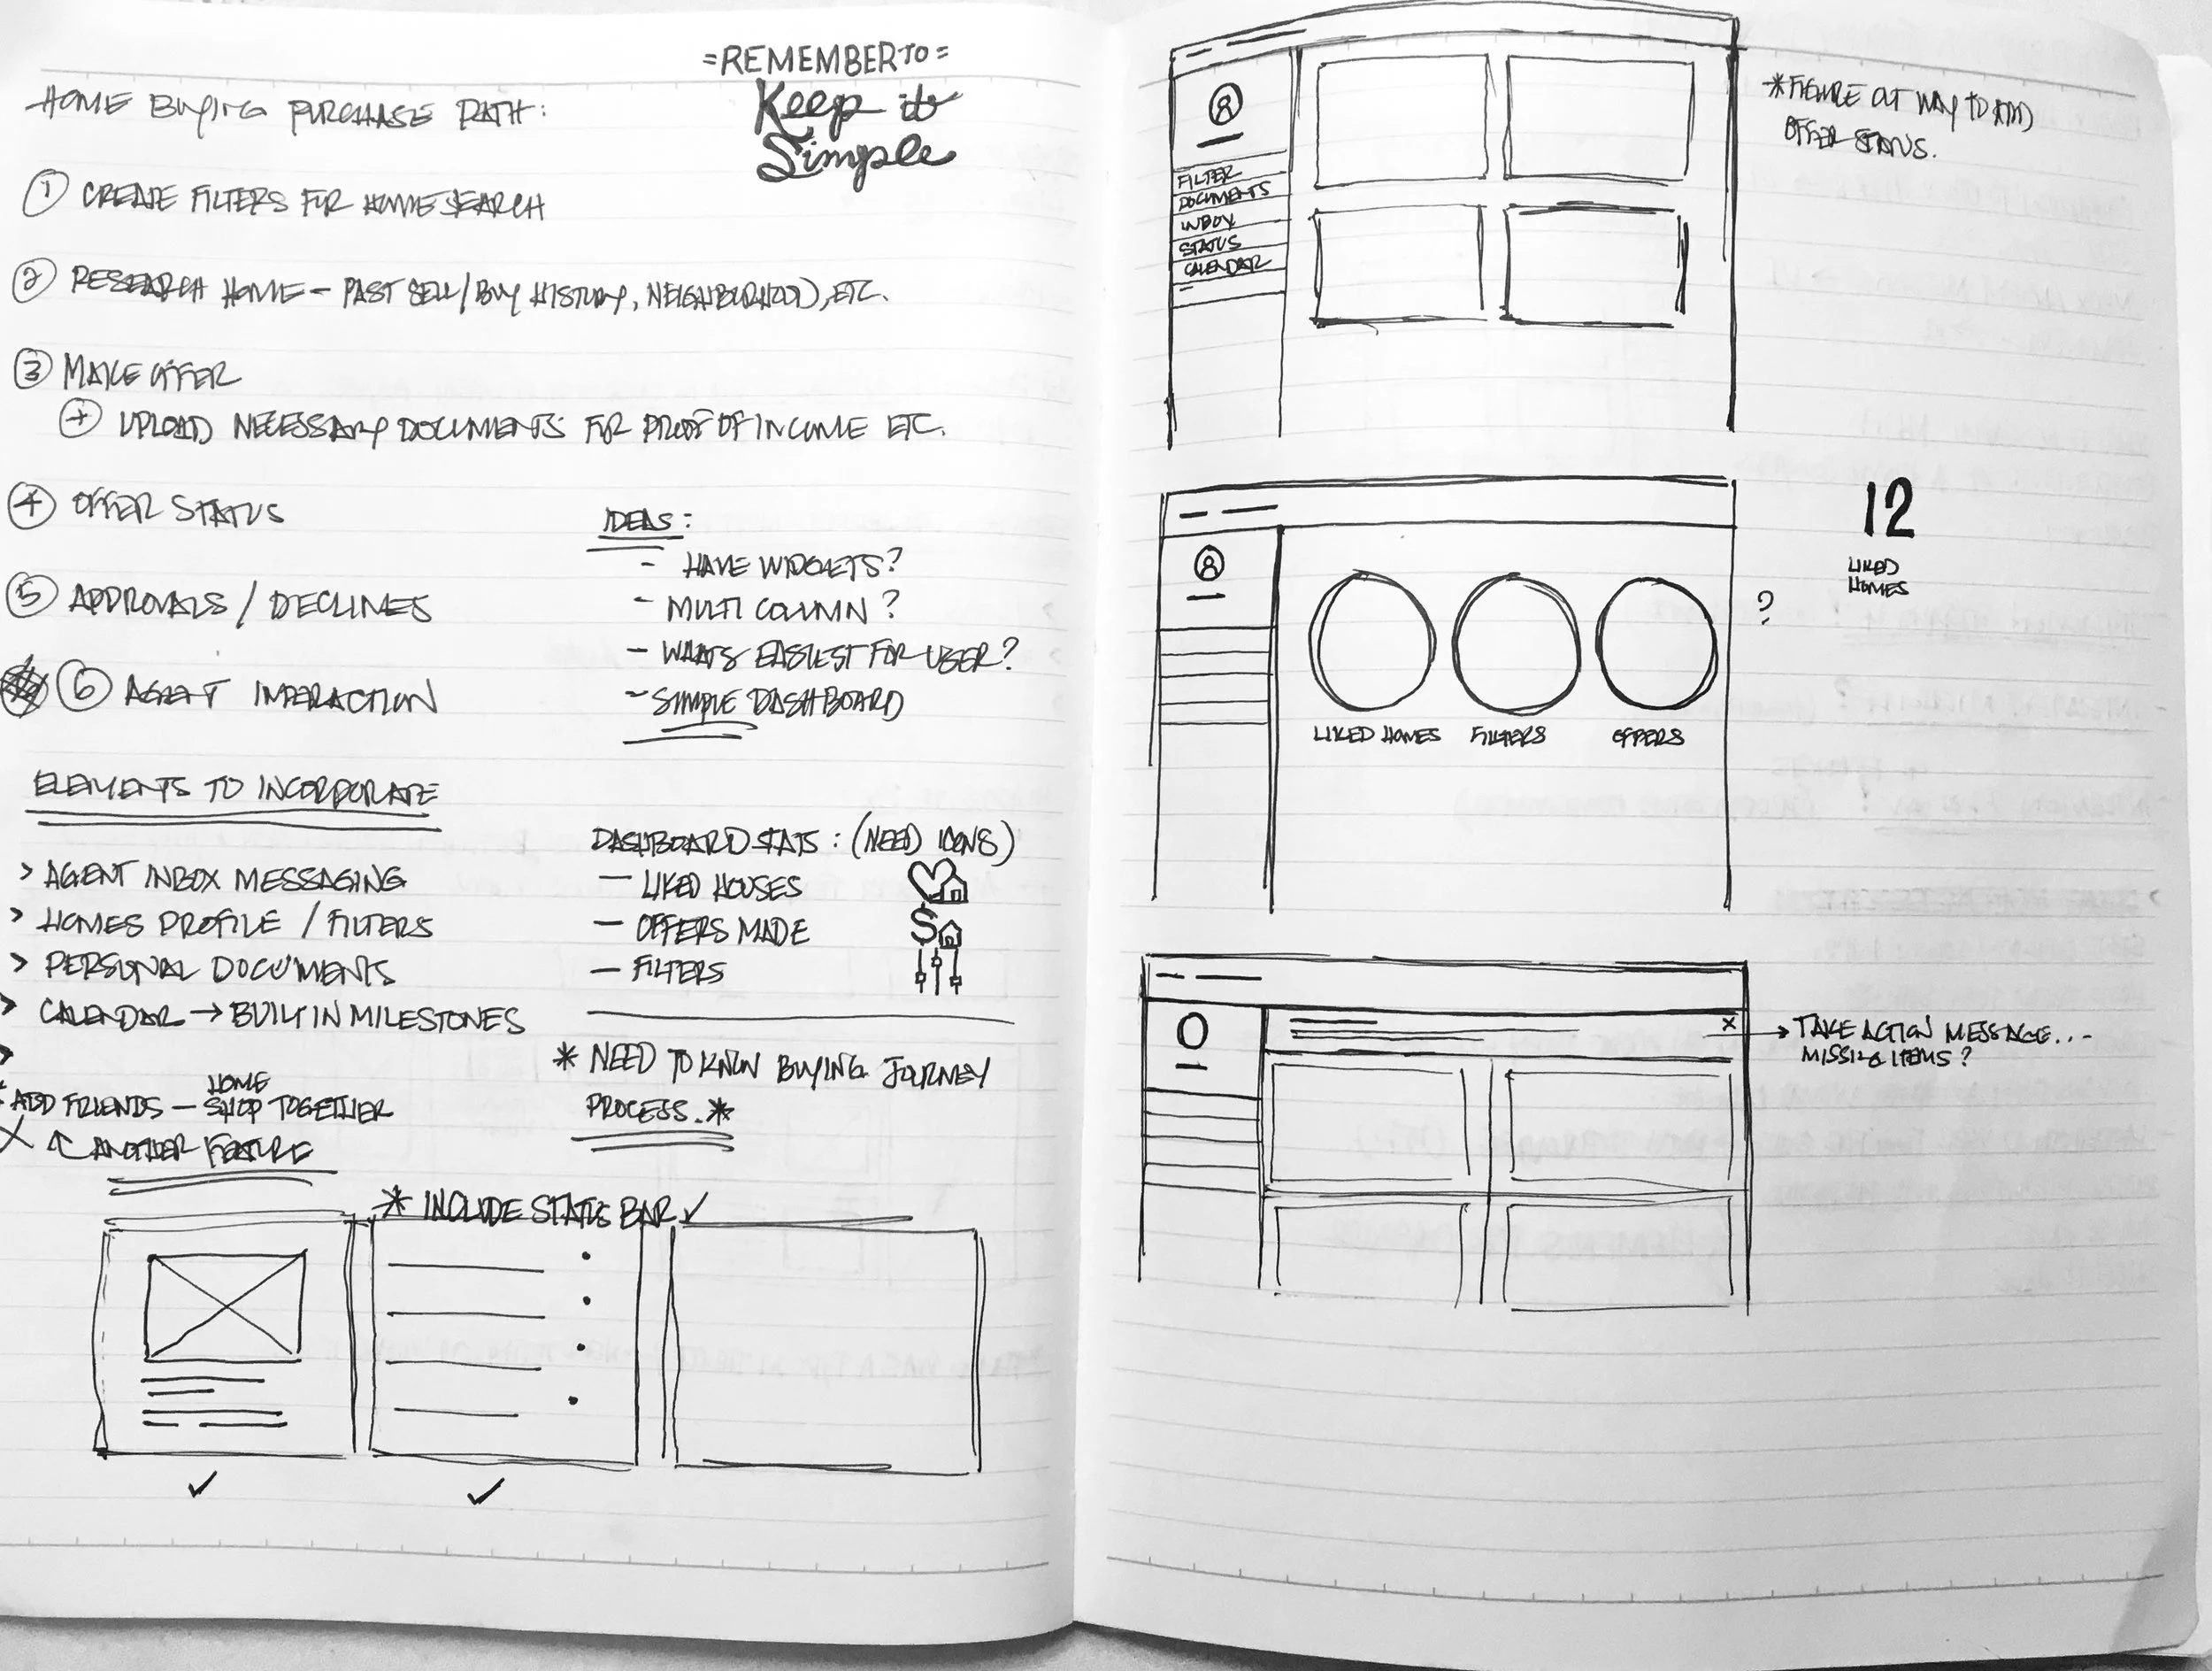 =REMEMBER TO=
Keep it
Simple
HOME BUYING PURCHASE PATH:
① CREATE FILTERS FOR HOME SEARCH
② RESEARCH HOME - PAST SELL/BUY HISTORY, NEIGHBOURHOOD, ETC.
③ MAKE OFFER
+ UPLOAD NECESSARY DOCUMENTS FOR PROOF OF INCOME ETC.
④ OFFER STATUS
⑤ APPROVALS / DECLINES
⑥ AGENT INTERACTION
IDEAS:
- HAVE WIDGETS?
- MULTI COLUMN?
- WHATS EASIEST FOR USER?
- SIMPLE DASHBOARD
ELEMENTS TO INCORPORATE
> AGENT INBOX MESSAGING
> HOMES PROFILE / FILTERS
> PERSONAL DOCUMENTS
> CALENDAR → BUILT IN MILESTONES
>
HOME
ADD FRIENDS - SHOP TOGETHER
ANOTHER FEATURE
DASHBOARD STATS: (NEED ICONS)
- LIKED HOUSES
- OFFERS MADE
$
- FILTERS
* NEED TO KNOW BUYING JOURNEY
PROCESS.*
* INCLUDE STATUS BAR ✓
✓ ✓
FILTER
DOCUMENTS
INBOX
STATUS
CALENDAR
*FIGURE OUT WAY TO ADD
OFFER STATUS.
LIKED HOMES FILTERS OFFERS
?
12
LIKED
HOMES
X
→ TAKE ACTION MESSAGE...
MISSING ITEMS?